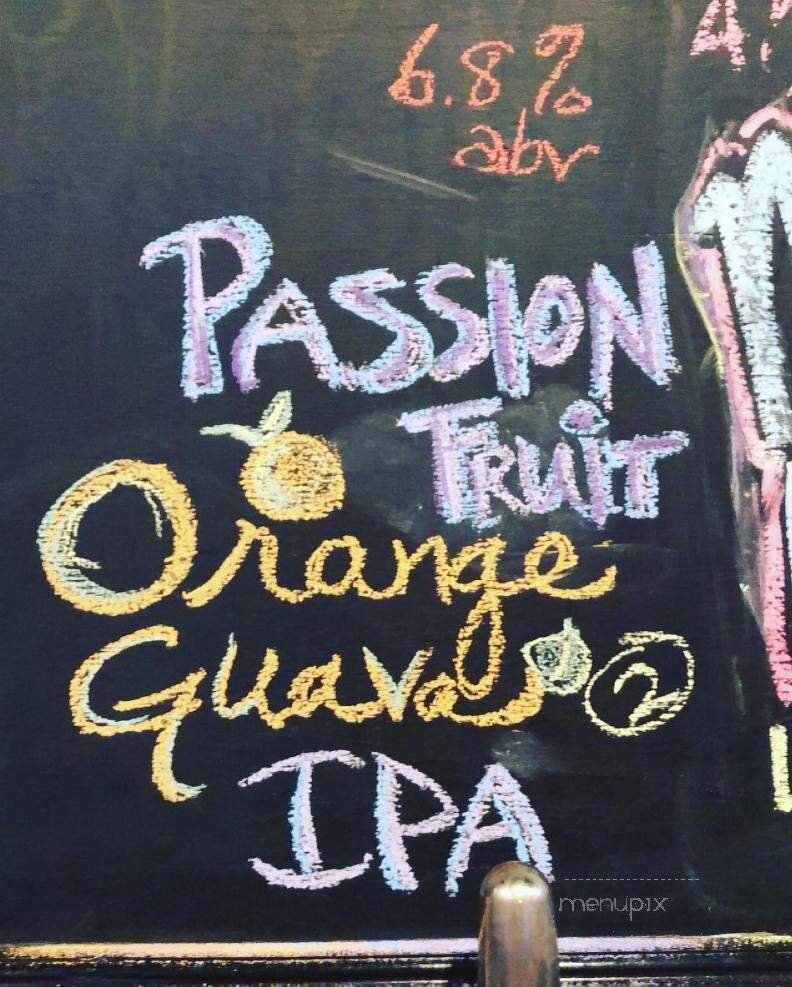 6.8%
abv
PASSION
FRUIT
Orange
Guava 2
IPA
menupix